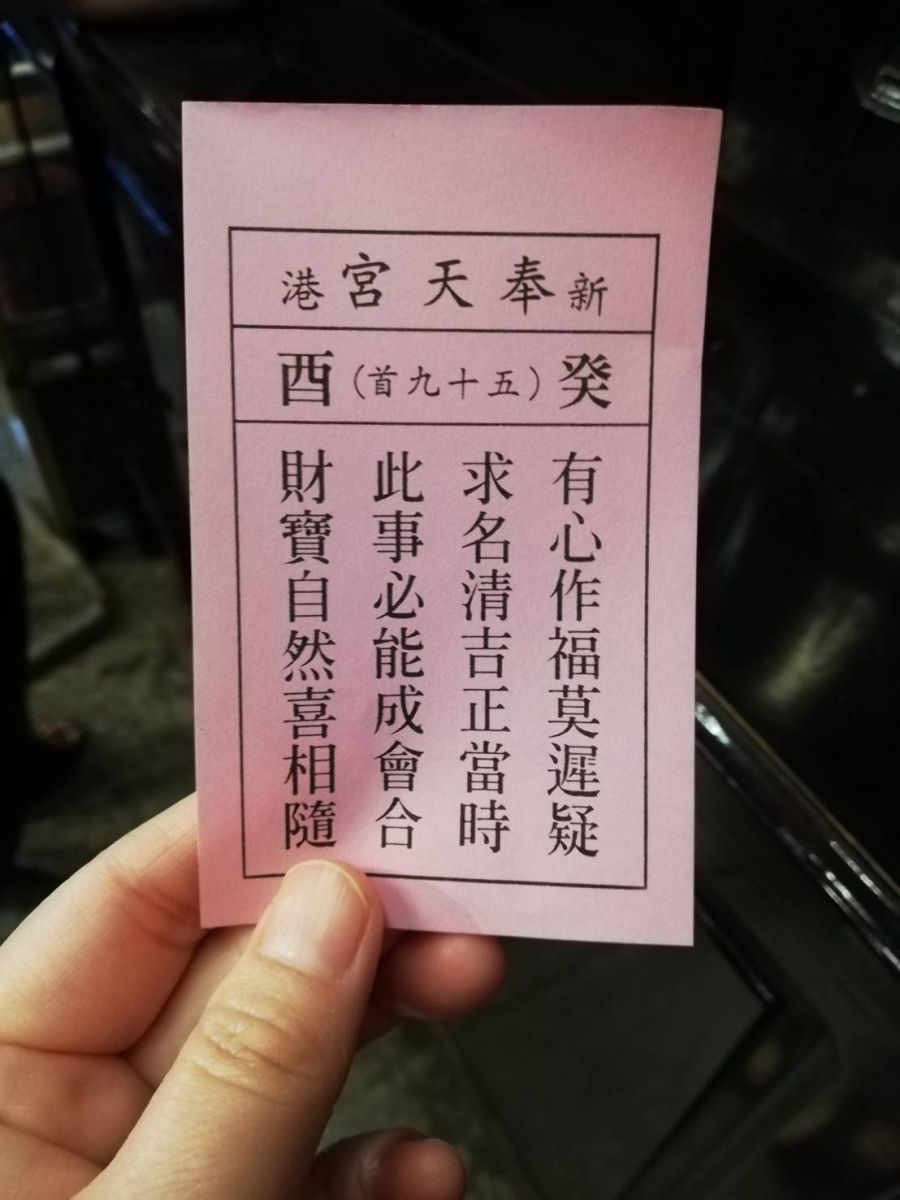 新奉天宮港
癸(五十九首)酉
有心作福莫遲疑
求名清吉正當時
此事必能成會合
財寶自然喜相隨